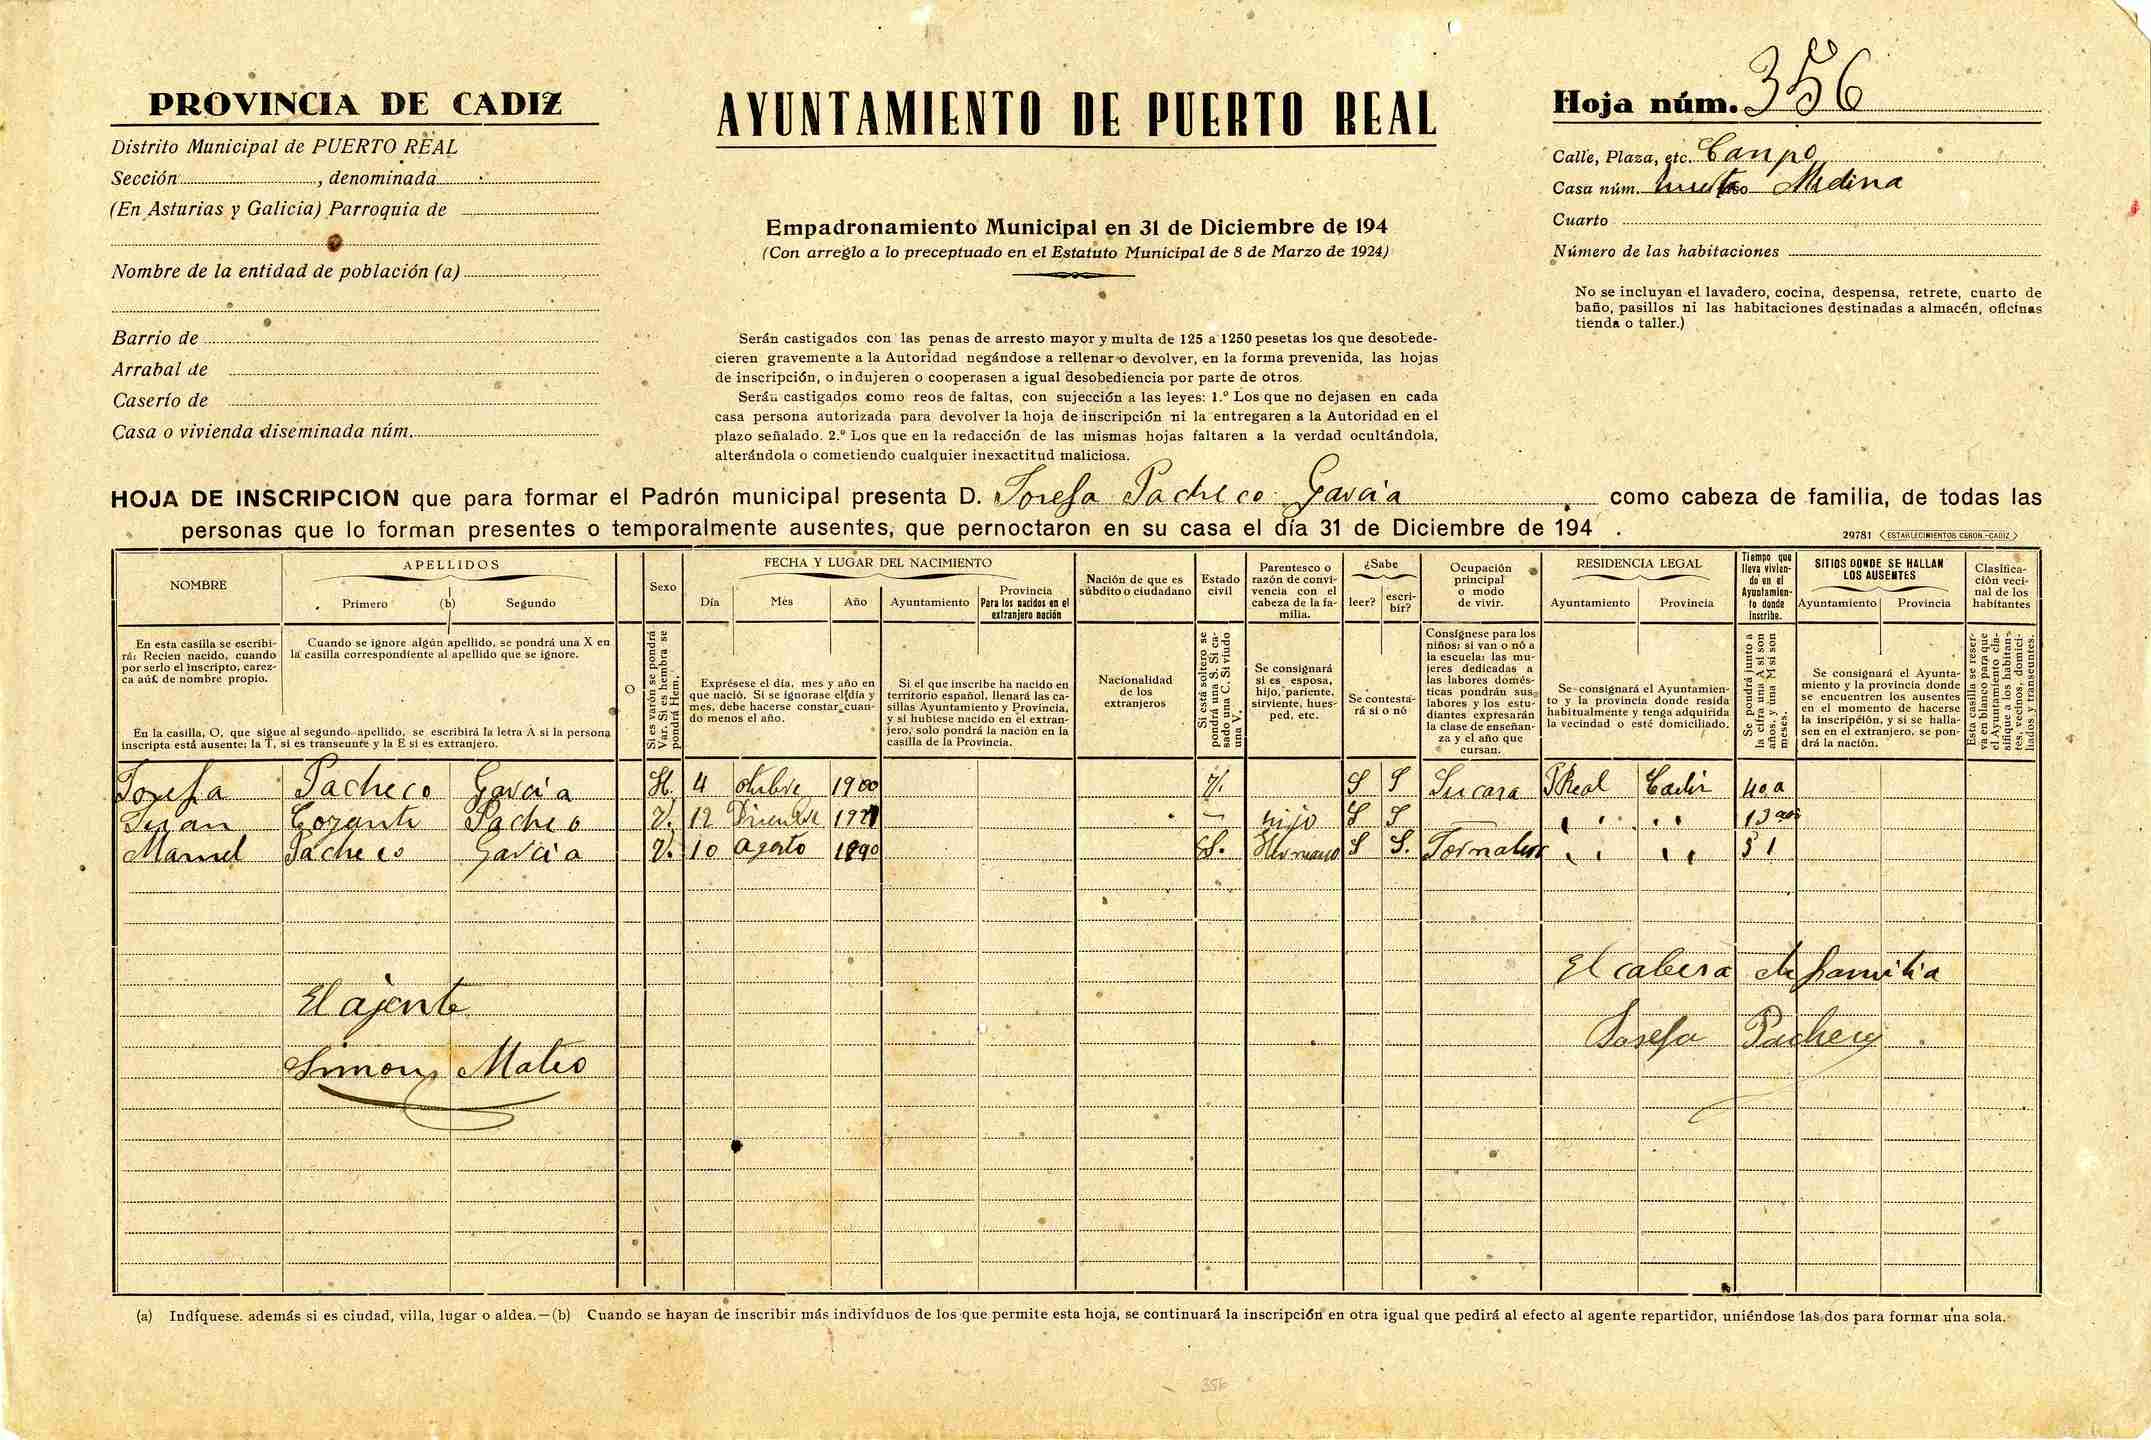 PROVINCIA DE CADIZ
Distrito Municipal de PUERTO REAL
Sección , denominada
(En Asturias y Galicia) Parroquia de
Nombre de la entidad de población (a)
Barrio de
Arrabal de
Caserío de
Casa o vivienda diseminada núm.
AYUNTAMIENTO DE PUERTO REAL
Empadronamiento Municipal en 31 de Diciembre de 194
(Con arreglo a lo preceptuado en el Estatuto Municipal de 8 de Marzo de 1924)
Serán castigados con las penas de arresto mayor y multa de 125 a 1250 pesetas los que desobede-
cieren gravemente a la Autoridad negándose a rellenar o devolver, en la forma prevenida, las hojas
de inscripción, o indujeren o cooperasen a igual desobediencia por parte de otros.
Serán castigados como reos de faltas, con sujección a las leyes: 1.º Los que no dejasen en cada
casa persona autorizada para devolver la hoja de inscripción ni la entregaren a la Autoridad en el
plazo señalado. 2.º Los que en la redacción de las mismas hojas faltaren a la verdad ocultándola,
alterándola o cometiendo cualquier inexactitud maliciosa.
Hoja núm. 356
Calle, Plaza, etc. Canpo
Casa núm. huerta Piso Medina
Cuarto
Número de las habitaciones
No se incluyan el lavadero, cocina, despensa, retrete, cuarto de
baño, pasillos ni las habitaciones destinadas a almacén, oficinas
tienda o taller.)
HOJA DE INSCRIPCION que para formar el Padrón municipal presenta D. Josefa Pacheco García como cabeza de familia, de todas las
personas que lo forman presentes o temporalmente ausentes, que pernoctaron en su casa el día 31 de Diciembre de 194 .
29781 ESTABLECIMIENTOS CERON.-CADIZ
NOMBRE
APELLIDOS
Primero (b) Segundo
Sexo
FECHA Y LUGAR DEL NACIMIENTO
Día Mes Año Ayuntamiento
Provincia
Para los nacidos en el
extranjero nación
Nación de que es
súbdito o ciudadano
Estado
civil
Parentesco o
razón de convi-
vencia con el
cabeza de la fa-
milia.
¿Sabe
leer? escri-
bir?
Ocupación
principal
o modo
de vivir.
RESIDENCIA LEGAL
Ayuntamiento Provincia
Tiempo que
lleva vivien-
do en el
Ayuntamien-
to donde
inscribe.
SITIOS DONDE SE HALLAN
LOS AUSENTES
Ayuntamiento Provincia
Clasifica-
ción veci-
nal de los
habitantes
En esta casilla se escribi-
rá: Recien nacido, cuando
por serlo el inscripto, carez-
ca aún de nombre propio.
Cuando se ignore algún apellido, se pondrá una X en
la casilla correspondiente al apellido que se ignore.
En la casilla, O, que sigue al segundo apellido, se escribirá la letra A si la persona
inscripta está ausente: la T, si es transeunte y la E si es extranjero.
O
Si es varón se pondrá
Var. Si es hembra se
pondrá Hem.
Exprésese el día, mes y año en
que nació. Si se ignorase el día y
mes, debe hacerse constar cuan-
do menos el año.
Si el que inscribe ha nacido en
territorio español, llenará las ca-
sillas Ayuntamiento y Provincia,
y si hubiese nacido en el extran-
jero, solo pondrá la nación en la
casilla de la Provincia.
Nacionalidad
de los
extranjeros
Si está soltero se
pondrá una S. Si ca-
sado una C. Si viudo
una V.
Se consignará
si es esposa,
hijo, pariente,
sirviente, hues-
ped, etc.
Se contesta-
rá si o nó
Consígnese para los
niños: si van o nó a
la escuela: las mu-
jeres dedicadas a
las labores domés-
ticas pondrán sus
labores y los estu-
diantes expresarán
la clase de enseñan-
za y el año que
cursan.
Se consignará el Ayuntamien-
to y la provincia donde resida
habitualmente y tenga adquirida
la vecindad o esté domiciliado.
Se pondrá junto a
la cifra una A si son
años, y una M si son
meses.
Se consignará el Ayunta-
miento y la provincia donde
se encuentren los ausentes
en el momento de hacerse
la inscripción, y si se halla-
sen en el extranjero, se pon-
drá la nación.
Esta casilla se reser-
va en blanco para que
el Ayuntamiento cla-
sifique a los habitan-
tes, vecinos, domici-
liados y transeuntes.
Josefa Pacheco García H. 4 otubre 1900 V. S S Su casa P Real Cadiz 40 a
Juan Pacheo V. 12 1921 — hijo S S — 19
Manuel Pacheco García V. 10 agosto 1890 S. Hermano S S. 51
El cabesa de familia
Josefa Pacheco
El ajente
Simon Mateo
(a) Indíquese. además si es ciudad, villa, lugar o aldea.—(b) Cuando se hayan de inscribir más individuos de los que permite esta hoja, se continuará la inscripción en otra igual que pedirá al efecto al agente repartidor, uniéndose las dos para formar una sola.
356